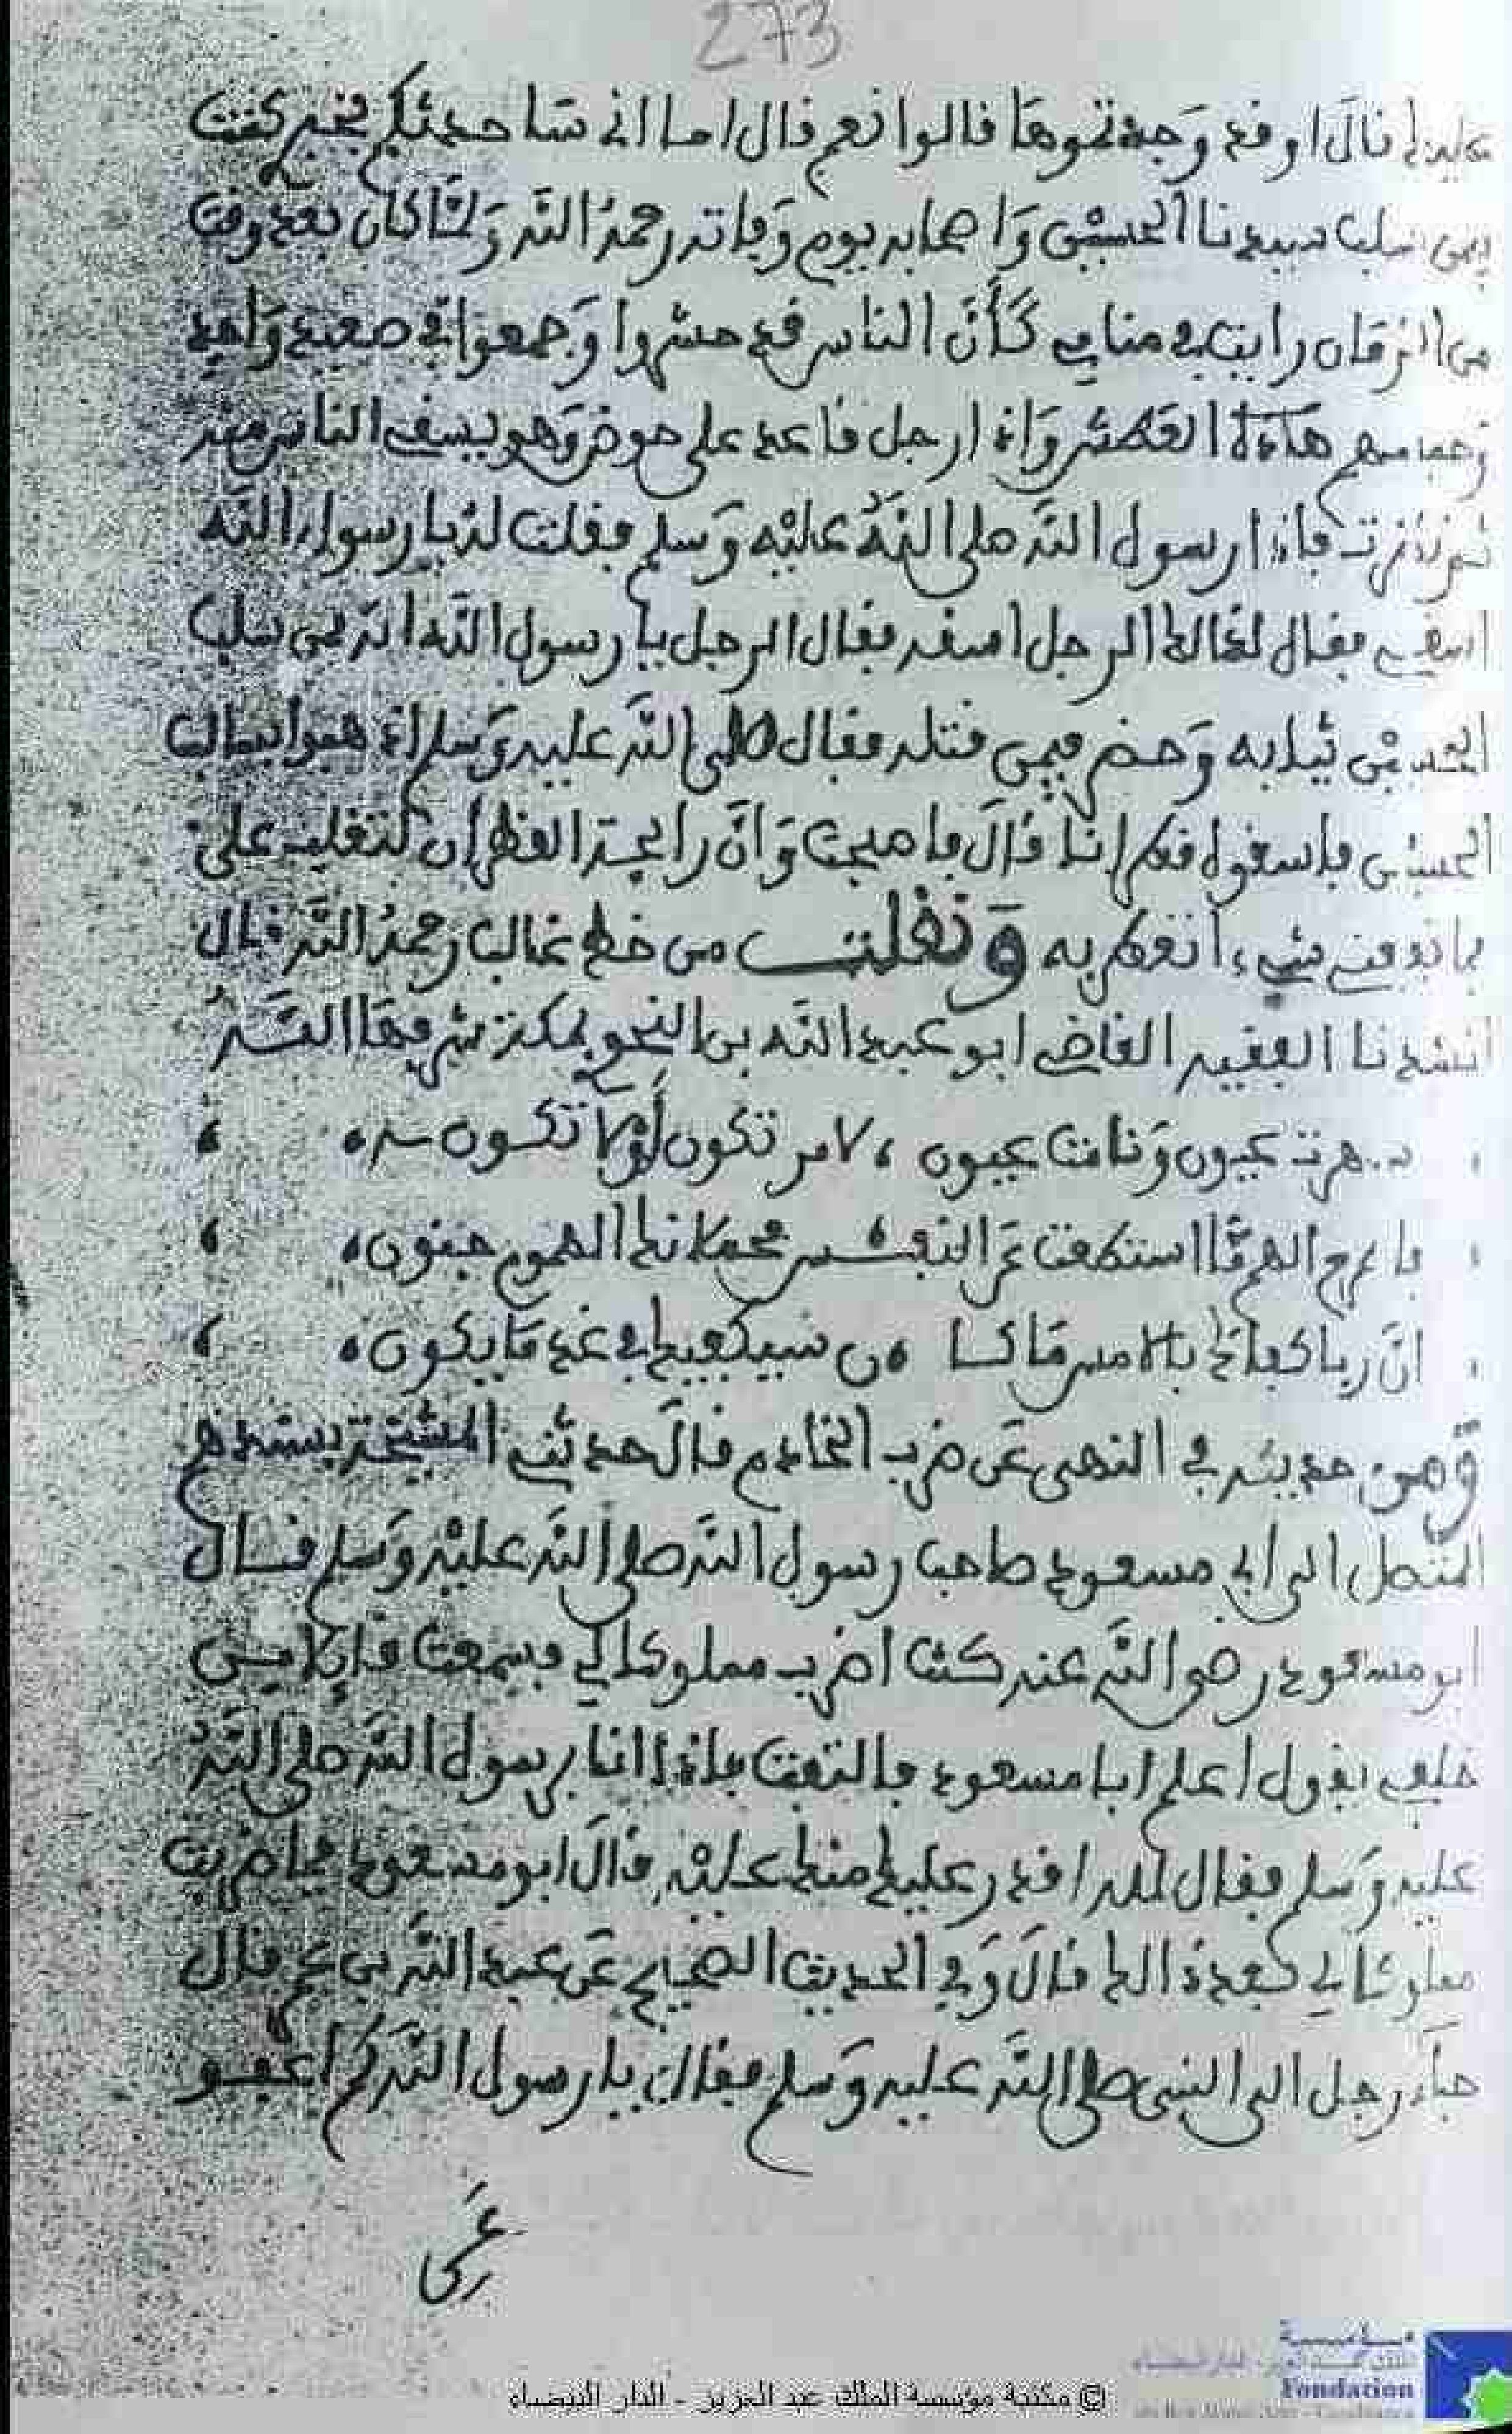 273
قال او قد وجدتموها قالوا نعم قال اما انى ساحدثكم بخبر كنت
سلب سيدنا الحسين وَاصحابه يوم وَفاته رحمهُ الله وَلمّا كان بعد وقت
من الزمان رايت في منامي كَأَنّ الناس قد حشروا وَجمعوا في صعيد وَاحد
العطش وَاذا رجل قاعد على حوض وَهو يسقى الناس منه
فاذا رسول الله صلى اللهُ عليْه وَسلم فقلت لهُ يا رسول الله
اسقني فقال لذالك الرجل اسقه فقال الرجل يا رسول الله انه ممن سلب
الحسيْن ثيابه وَحضر فيمن قتله فقال صلى الله عليه وَسلم اذهبوا بسالب
الحسين فاسقوه قطرانا قالَ فاصبحت وَانّ رايحة القطران لتغلب على
شيء انعم به وَنقلت من خط غالب رحمهُ الله قال
انشدنا الفقيه القاضي ابو عبد الله بن النحو بمكة شرفها اللـهُ
سهرت عيون وَنامت عيون ، لامر تكون أوْ لا تكون
فاعرج الهمّ ما استطعت عن النفس فحملانك الهموم جنون
انّ ربا كفاك بالامس ما كا ن سيكفيك في غد مَا يكون
وَمن حديثه في النهى عن ضرب الخادم قالَ حدثني المشيخة بسندهم
المتصل الى ابى مسعود صاحب رسول الله صلى الله عليْه وَسلم قال
ابو مسعود رضي الله عنه كنت اضرب مملوكا لي فسمعت قايلا من
خلفي يقول اعلم ابا مسعود فالتفت فاذا انا برسول الله صلى اللهُ
عليه وَسلم فقال لله اقدر عليك منك عليْه قالَ ابو مسعود فما ضربت
مملوكا لي بعد ذالك قالَ وَفي الحديث الصحيح عن عبد الله بن عمر قال
جاء رجل الى النبى صلى الله عليه وَسلم فقال يا رسول الله كم اعفو
عَن
مؤسسة
Fondation
© مكتبة مؤسسة الملك عبد العزيز - الدار البيضاء